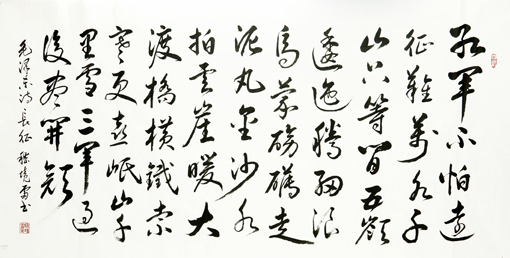 紅軍不怕遠
征難萬水千
山只等閒五嶺
逶迤騰細浪
烏蒙磅礴走
泥丸金沙水
拍雲崖暖大
渡橋橫鐵索
寒更喜岷山千
里雪三軍過
後盡開顏
毛澤東詩長征 書